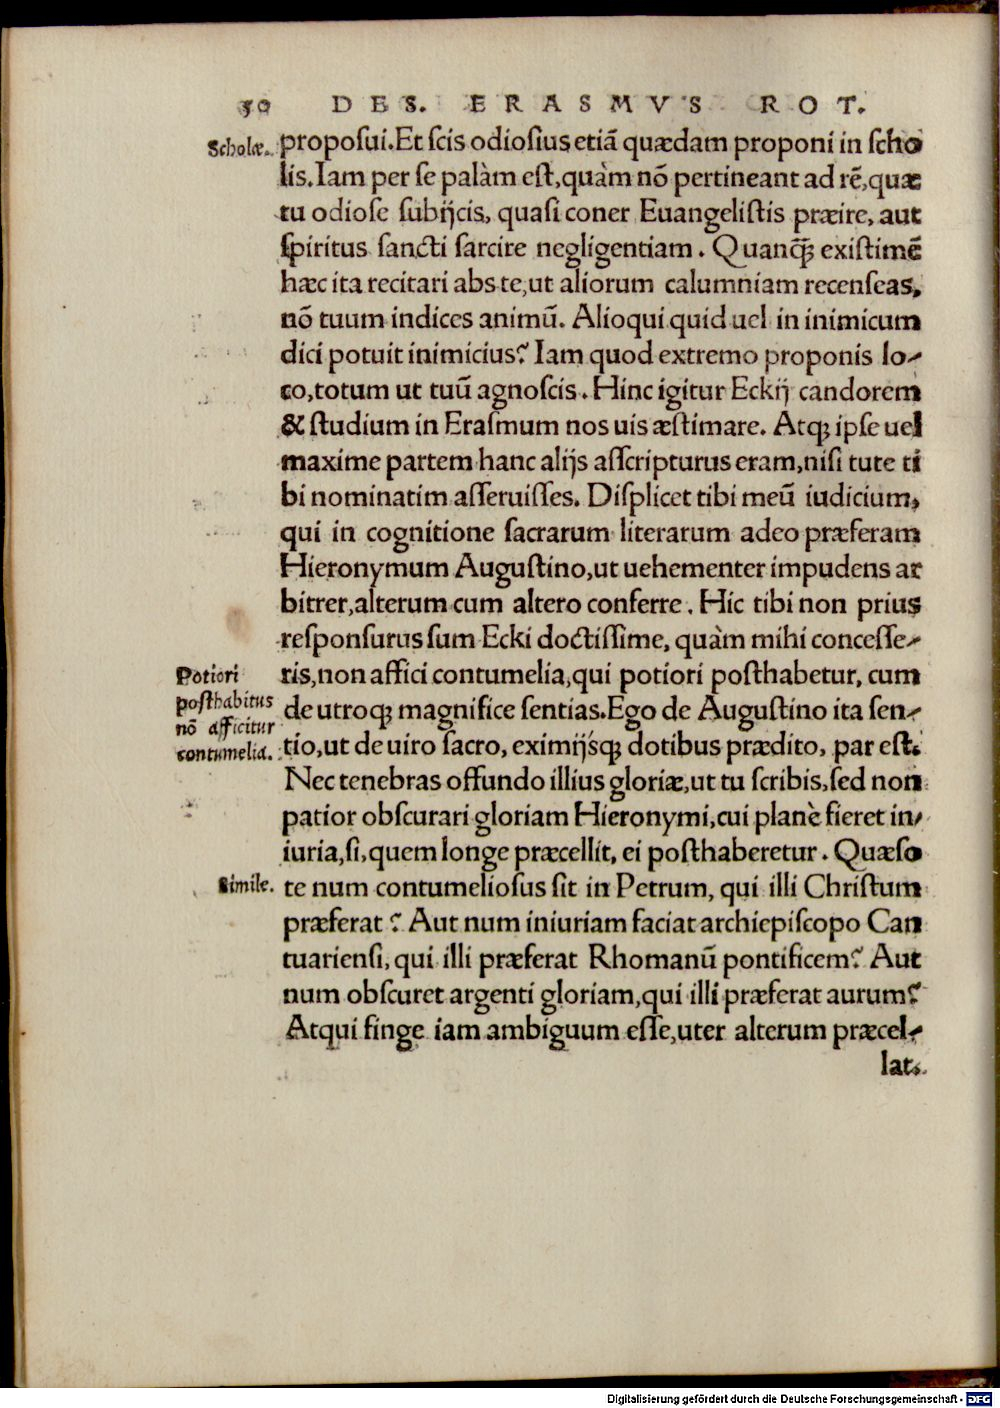 50 DES. ERASMVS ROT.
Scholæ. proposui.Et scis odiosius etiã quædam proponi in scho
lis.Iam per se palàm est,quàm nõ pertineant ad rẽ,quæ
tu odiose subijcis, quasi coner Euangelistis præire, aut
spiritus sancti sarcire negligentiam. Quanq̃ existimẽ
hæc ita recitari abs te,ut aliorum calumniam recenseas,
nõ tuum indices animũ. Alioqui quid uel in inimicum
dici potuit inimicius? Iam quod extremo proponis lo-
co,totum ut tuũ agnoscis. Hinc igitur Eckij candorem
& studium in Erasmum nos uis æstimare. Atqꝫ ipse uel
maxime partem hanc alijs asscripturus eram,nisi tute ti
bi nominatim asseruisses. Displicet tibi meũ iudicium,
qui in cognitione sacrarum literarum adeo præferam
Hieronymum Augustino,ut uehementer impudens ar
bitrer,alterum cum altero conferre. Hic tibi non prius
responsurus sum Ecki doctissime, quàm mihi concesse-
Potiori
posthabitus
nõ afficitur
contumelia.
ris,non affici contumelia,qui potiori posthabetur, cum
de utroqꝫ magnifice sentias.Ego de Augustino ita sen-
tio,ut de uiro sacro, eximijsqꝫ́ dotibus prædito, par est.
Nec tenebras offundo illius gloriæ,ut tu scribis,sed non
patior obscurari gloriam Hieronymi,cui planè fieret in-
iuria,si,quem longe præcellit, ei posthaberetur. Quæso
Simile. te num contumeliosus sit in Petrum, qui illi Christum
præferat? Aut num iniuriam faciat archiepiscopo Can
tuariensi, qui illi præferat Rhomanũ pontificem? Aut
num obscuret argenti gloriam,qui illi præferat aurum?
Atqui finge iam ambiguum esse,uter alterum præcel-
lat.
Digitalisierung gefördert durch die Deutsche Forschungsgemeinschaft - DFG